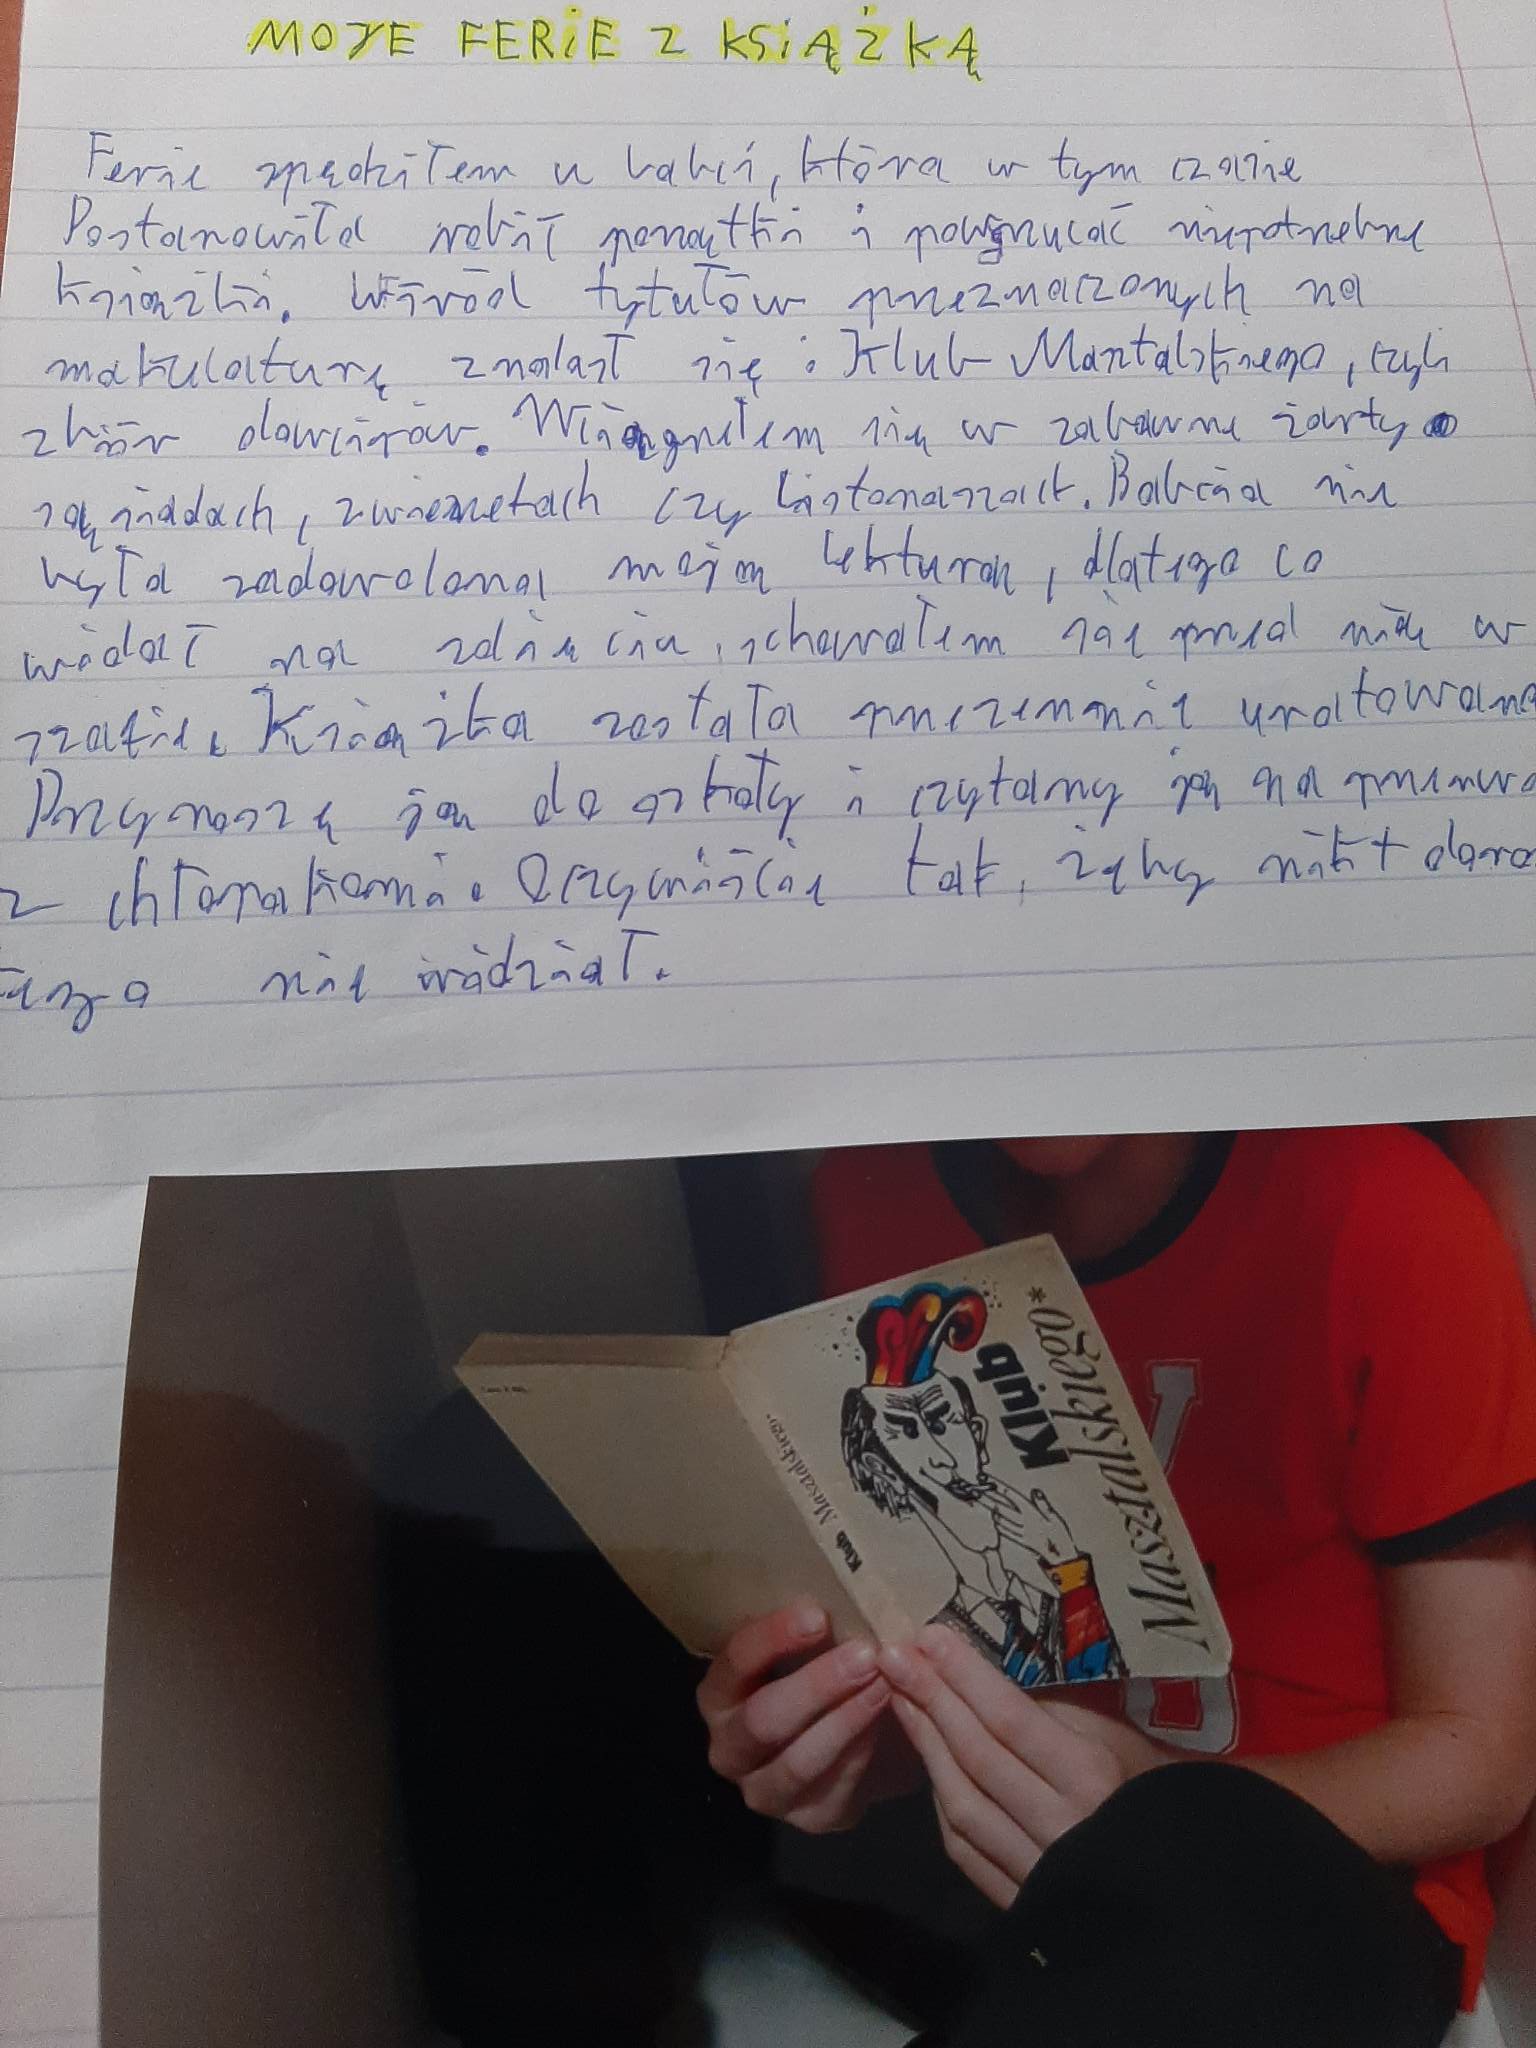 MOJE FERIE Z KSIĄŻKĄ
Ferie spędziłem u babci, która w tym czasie
Postanowiła robić porządki i powyrzucać niepotrzebne
książki. Wśród tytułów przeznaczonych na
makulaturę znalazł się: Klub Masztalskiego, czyli
zbiór dowcipów. Wciągnęłem się w zabawne żarty o
sąsiadach, zwierzętach czy listonoszach. Babcia nie
była zadowolona moją lekturą, dlatego co
widać na zdjęciu, schowałem się przed nią w
szafie. Książka została przezemnie uratowana
Przynoszę ją do szkoły i czytamy ją na przerwa
z chłopakami. Oczywiście tak, żeby nikt doro
tego nie widział.
Klub
Masztalskiego*
Klub Masztalskiego*